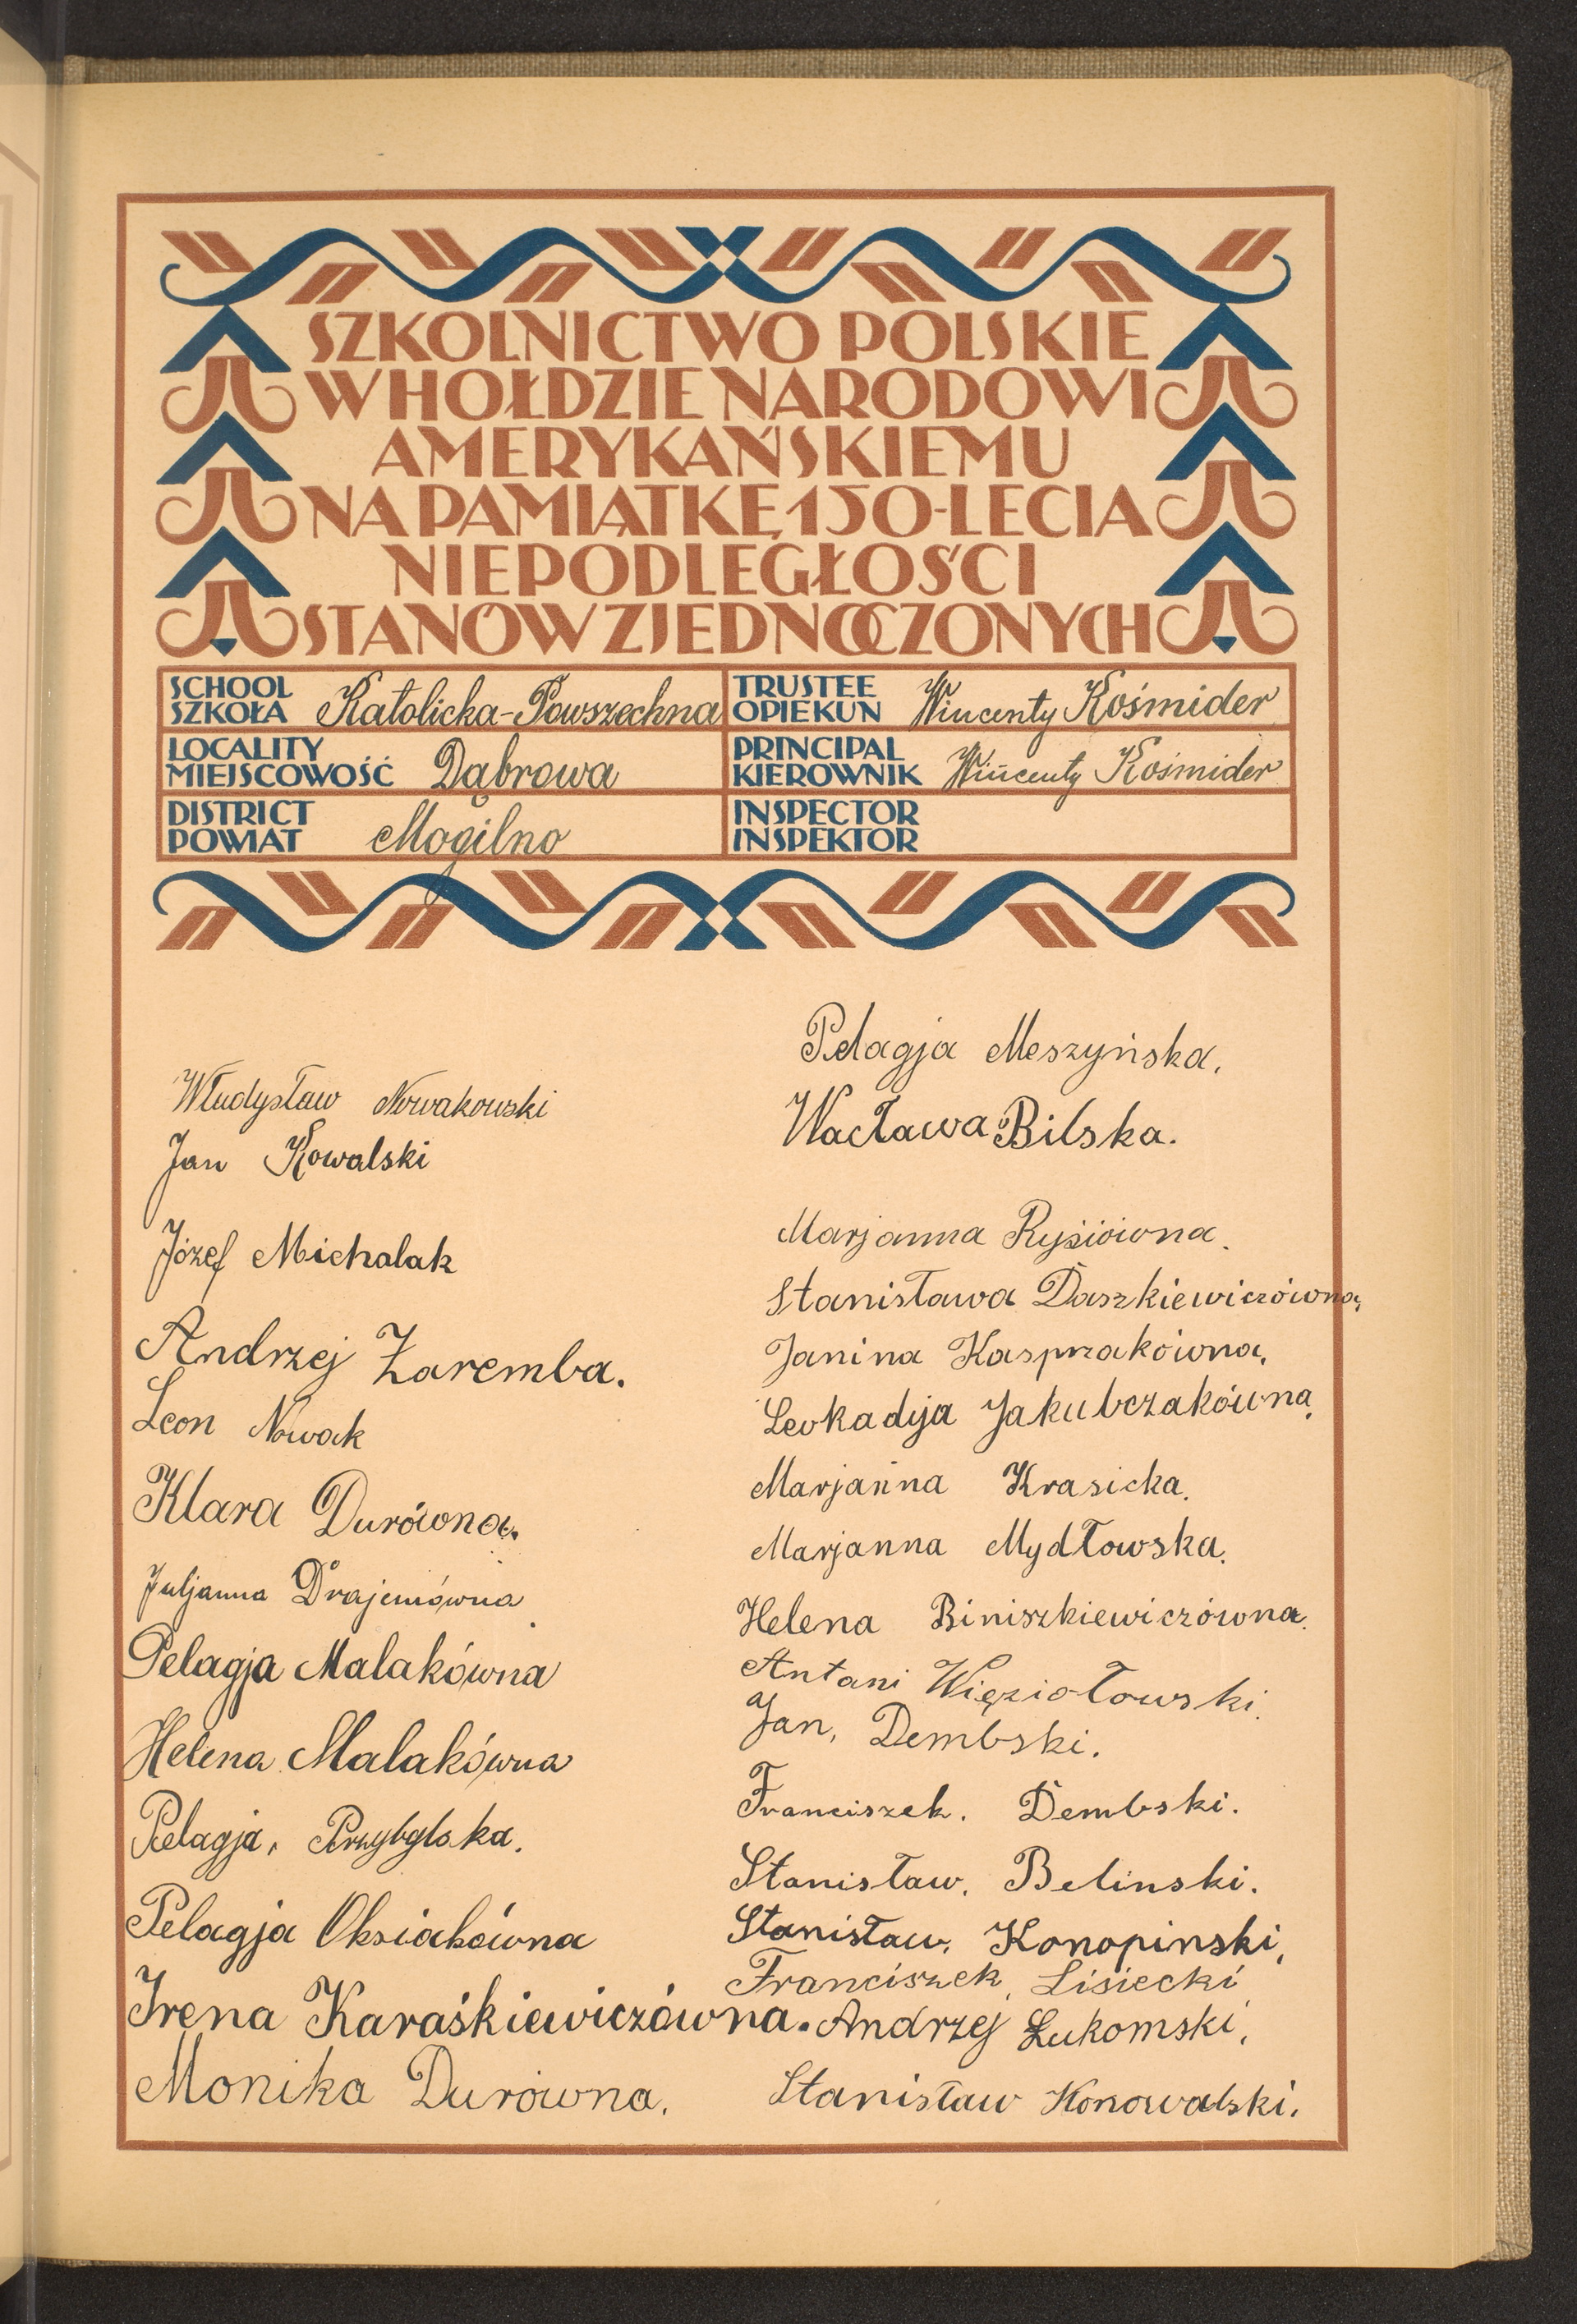 SZKOLNICTWO POLSKIE
W HOŁDZIE NARODOWI
AMERYKAŃSKIEMU
NA PAMIĄTKĘ 150-LECIA
NIEPODLEGŁOŚCI
STANÓW ZJEDNOCZONYCH
SCHOOL
SZKOŁA Katolicka-Powszechna
TRUSTEE
OPIEKUN Wincenty Kośmider
LOCALITY
MIEJSCOWOŚĆ Dąbrowa
PRINCIPAL
KIEROWNIK Wincenty Kośmider
DISTRICT
POWIAT Mogilno
INSPECTOR
INSPEKTOR
Władysław Nowakowski
Jan Kowalski
Józef Michalak
Andrzej Zaremba.
Leon Nowak
Klara Durówna.
Juljanna Drajemówna
Pelagja Malakówna
Helena Malakówna
Pelagja, Przybylska.
Pelagja Oksiakówna
Irena Karaśkiewiczówna.
Monika Durówna.
Pelagja Meszyńska.
Wacława Bilska.
Marjanna
Stanisława Daszkiewiczówna,
Janina Kasprzakówna,
Leokadyja Jakubczakówna,
Marjanna Krasicka.
Marjanna Mydłowska.
Helena Biniszkiewiczówna.
Antoni Więziołowski.
Jan, Dembski.
Franciszek. Dembski.
Stanisław. Belinski.
Stanisław. Konopinski,
Franciszek, Lisiecki
Andrzej Łukomski,
Stanisław Konowalski.